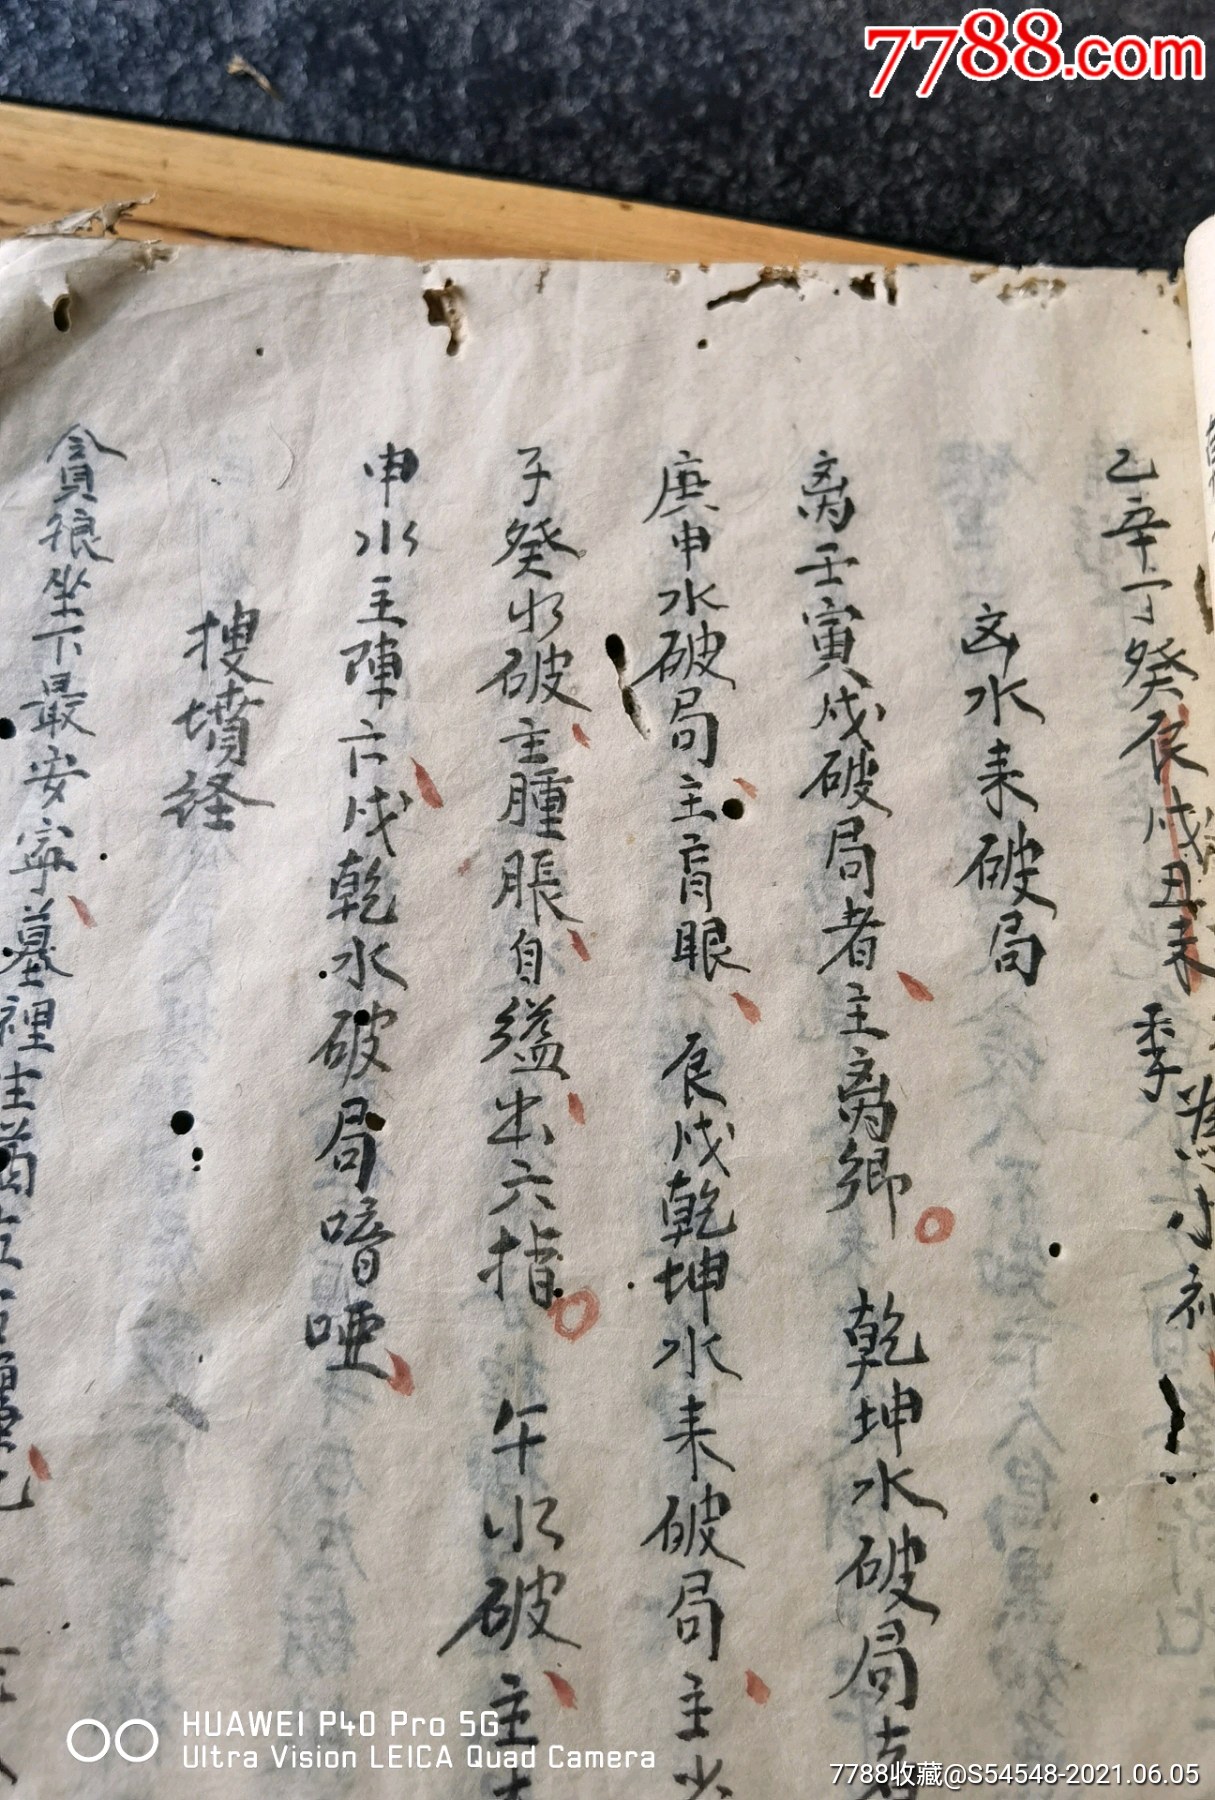 7788.com
乙辛丁癸辰戌丑未季
凶水来破局
离壬寅戌破局者主离鄉 乾坤水破局者
庚申水破局主盲眼 辰戌乾坤水来破局主少
子癸水破主腫脹自縊出六指 午水破主
申水主陣亡戌乾水破局喑啞
搜墳经
貪狼坐下最安寧墓裡生
HUAWEI P40 Pro 5G
Ultra Vision LEICA Quad Camera
7788收藏@S54548-2021.06.05